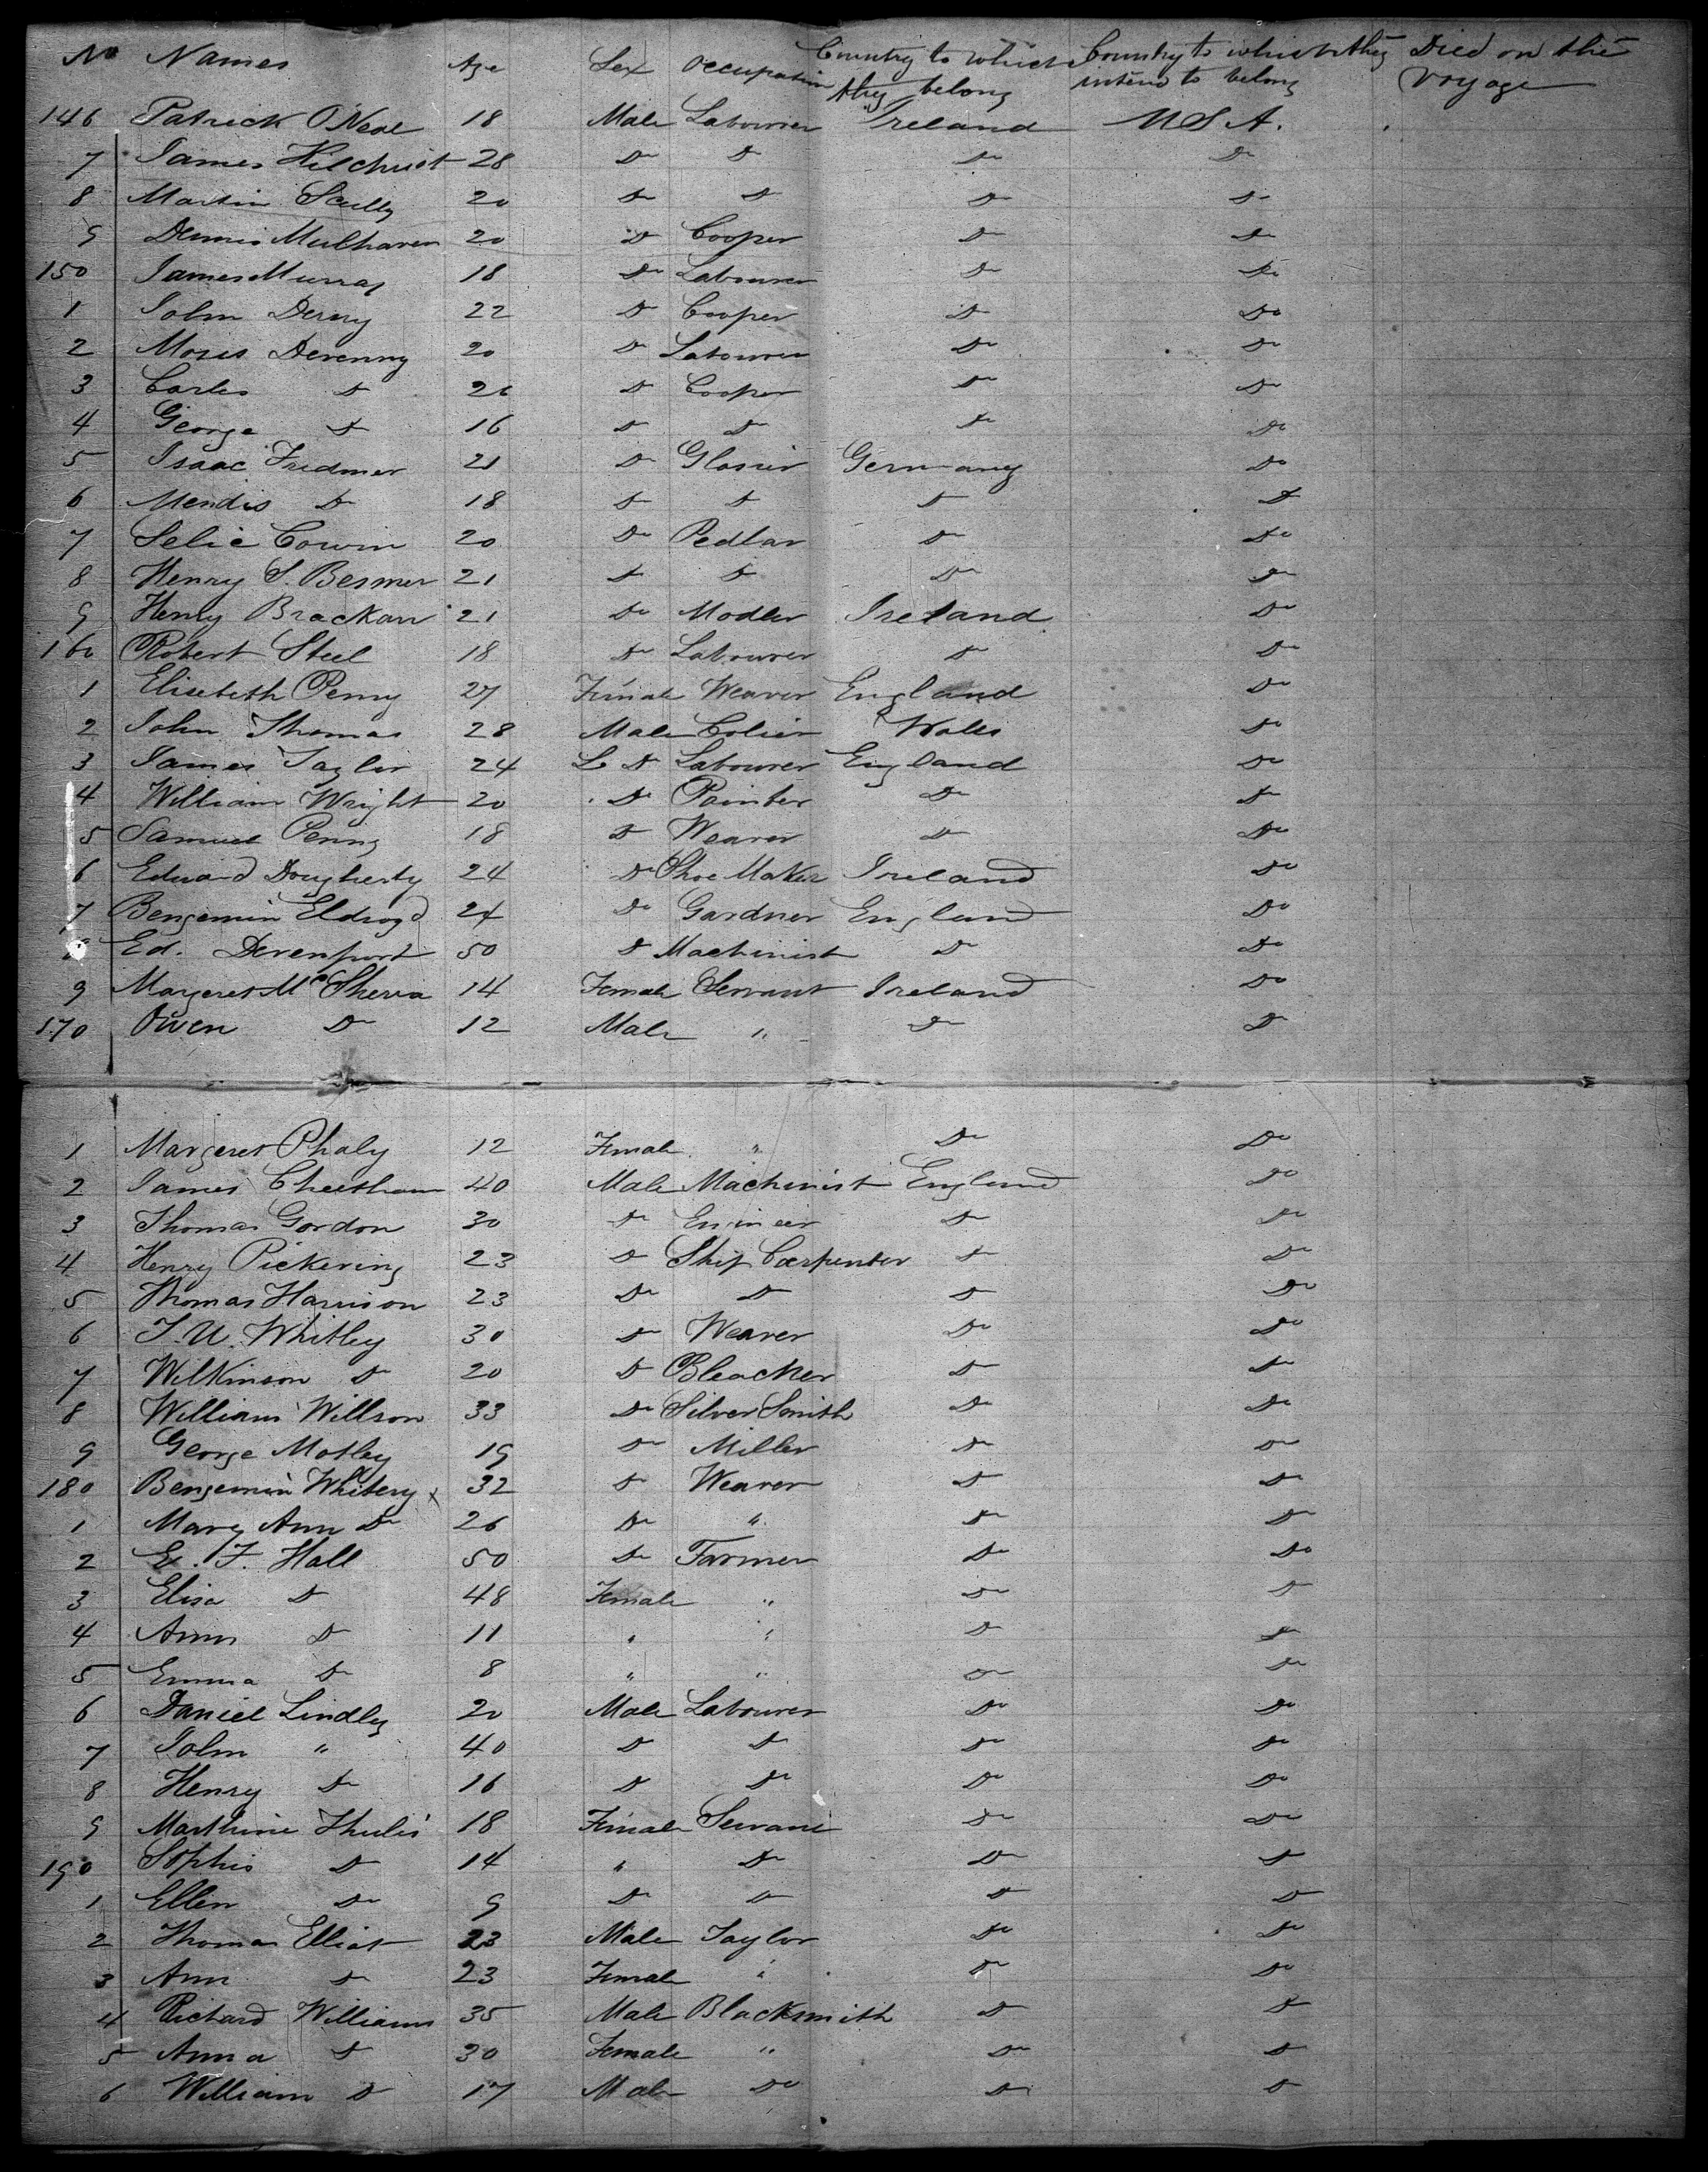 No Names Age Sex Occupation Country to which they belong Country to which they intend to belong Died on the Voyage
146 Patrick O'Neal 18 Male Labourer Ireland U S A.
7 James Hilchrist 28 Do Do Do Do
8 Martin Scully 20 Do Do Do Do
9 Dennis Mulharen 20 Do Cooper Do Do
150 James Murray 18 Do Labourer Do Do
1 John Derry 22 Do Cooper Do Do
2 Moses Devenny 20 Do Labourer Do Do
3 Carles Do 26 Do Cooper Do Do
4 George Do 16 Do Do Do Do
5 Isaac Fredmer 21 Do Glasier Germany Do
6 Mendis Do 18 Do Do Do Do
7 Selie Cowin 20 Do Pedlar Do Do
8 Henry S. Besmer 21 Do Do Do Do
9 Henry Brackan 21 Do Modler Ireland Do
160 Robert Steel 18 Do Labourer Do Do
1 Elisebeth Penny 27 Female Weaver England Do
2 John Thomas 28 Male Colier Wales Do
3 James Taylor 24 Do Labourer England Do
4 William Wright 20 Do Painter Do Do
5 Samuel Penny 18 Do Weaver Do Do
6 Edward Dougherty 24 Do Shoe Maker Ireland Do
7 Bengemin Eldroyd 24 Do Gardner England Do
Ed. Devenport 50 Do Machinist Do Do
9 Margeret McSherra 14 Female Servant Ireland Do
170 Owen Do 12 Male " Do Do
1 Margeret Phaly 12 Female " Do Do
2 James Cheetham 40 Male Machinist England Do
3 Thomas Gordon 30 Do Engineer Do Do
4 Henry Pickering 23 Do Ship Carpenter Do Do
5 Thomas Harrison 23 Do Do Do Do
6 J. U. Whitley 30 Do Weaver Do Do
7 Wilkinson Do 20 Do Bleacher Do Do
8 William Willson 33 Do Silver Smith Do Do
9 George Motley 19 Do Miller Do Do
180 Bengemin Whitery x 32 Do Weaver Do Do
1 Mary Ann Do 26 Do " Do Do
2 E. F. Hall 50 Do Farmer Do Do
3 Elisa Do 48 Female " Do Do
4 Ann Do 11 " " Do Do
5 Emma Do 8 " " Do Do
6 Daniel Lindley 20 Male Labourer Do Do
7 John " 40 Do Do Do Do
8 Henry Do 16 Do Do Do Do
9 Marthine Thulis 18 Female Servant Do Do
190 Sophis Do 14 " Do Do Do
1 Ellen Do 9 Do Do Do Do
2 Thomas Elliot 23 Male Taylor Do Do
3 Ann Do 23 Female " Do Do
4 Richard Williams 35 Male Blacksmith Do Do
5 Anna Do 30 Female " Do Do
6 William Do 17 Male Do Do Do